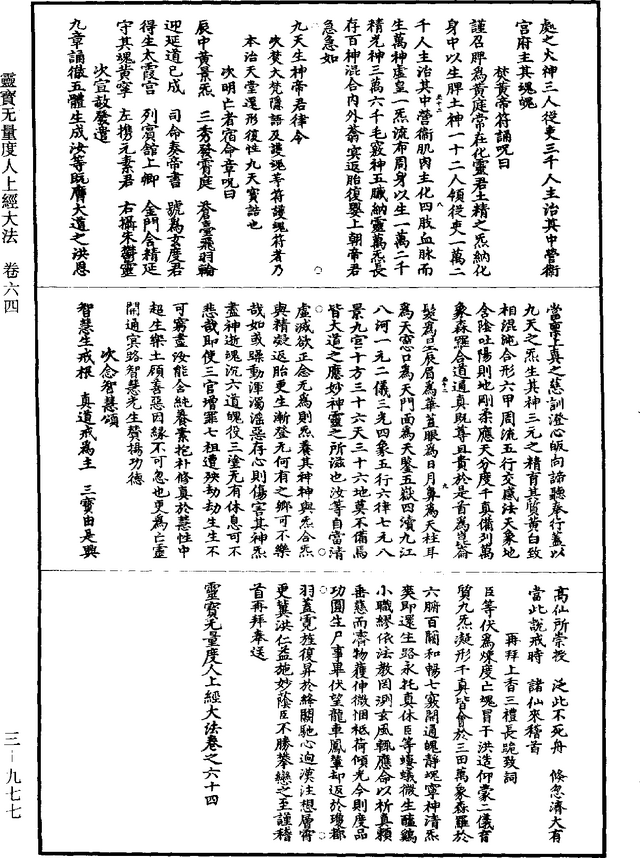 處之大神三人從吏三千人主治其中營衞
宮府主其魂魄
焚黃帝符誦呪曰
謹召脾為黃庭常在化靈君土精之炁納化
身中以生脾土神一十二人領從吏一萬二
千人主治其中營衞肌肉主化四肢血脉而
生萬神虛皇一炁流布周身以生一萬二千
精光神三萬六千毛竅神五臟納靈萬炁長
存百神混合內外蓊寞返胎復嬰上朝帝君
急急如
九天生神帝君律令
次焚大梵隱語及護魂等符護魂符者乃
本治天堂還形復性九天寳誥也
次明亡者宿命章呪曰
辰中黃景炁 三秀發霄庭 蒼臺飛羽輪
迎延道已成 司命奏帝書 號為玄度君
得生太霞宮 列賔館上卿 金門含精延
守其魂黃寧 左攜元素君 右攝朱鬱靈
次宣設發遣
九章誦徹五體生成汝等既膺大道之洪恩
當稟上真之慈訓澄心皈向諦聽奉行蓋以
九天之炁生其神三元之精育其質黃白致
相混沌合形六甲周流五行交感法天象地
含陰吐陽則地剛柔應天分度千真備列萬
象森羅合道通真既尊且貴於是首為崑崙
髮為星辰眉為華蓋眼為日月鼻為天柱耳
為天窓口為天門面為天鑒五嶽四瀆九江
八河一元二儀三光四象五行六律七元八
景九宮十方三十六天三十六地莫不備焉
皆大道之應妙神靈之所滋也汝等自當清
虛滅欲正念無為則炁養其神神與炁合炁
與精凝返胎更生漸登无何有之鄉可不樂
哉如或躁動渾濁滛惡存心則傷害其神炁
盡神逝魂沉六道魄役三塗无有休息可不
悲哉即使三官增罪七祖遭殃劫劫生生不
可窮盡汝能合純養素抱朴修真於慧性中
超生樂土顧善惡因緣不可忽也更為亡靈
開通冥路智慧光生贊揚功德
次念智慧頌
智慧生戒根 真道戒為主 三寳由是興
高仙所崇授 泛此不死舟 倏忽濟大有
當此說戒時 諸仙來稽首
再拜上香三禮長跪致詞
臣等伏為煉度亡魂冒干洪造仰蒙二儀育
質九炁凝形千真皆會於三田萬象森羅於
六腑百關和暢七竅開通魄靜魂寧神清炁
爽即還生路永托真休臣等螻蟻微生醯雞
小職繆依法教罔測玄風輒應命以祈真頼
垂慈而濟物獲伸微悃柢荷傾光今則度品
功圓生尸事畢伏望龍車鳳輦却返於瓊都
羽蓋霓旌復昇於絳闕馳心迥漢注想層霄
更冀洪仁益施妙蔭臣不勝攀戀之至謹稽
首再拜奉送
靈寳无量度人上經大法卷之六十四
靈寶无量度人上經大法 卷六四
三—九七七